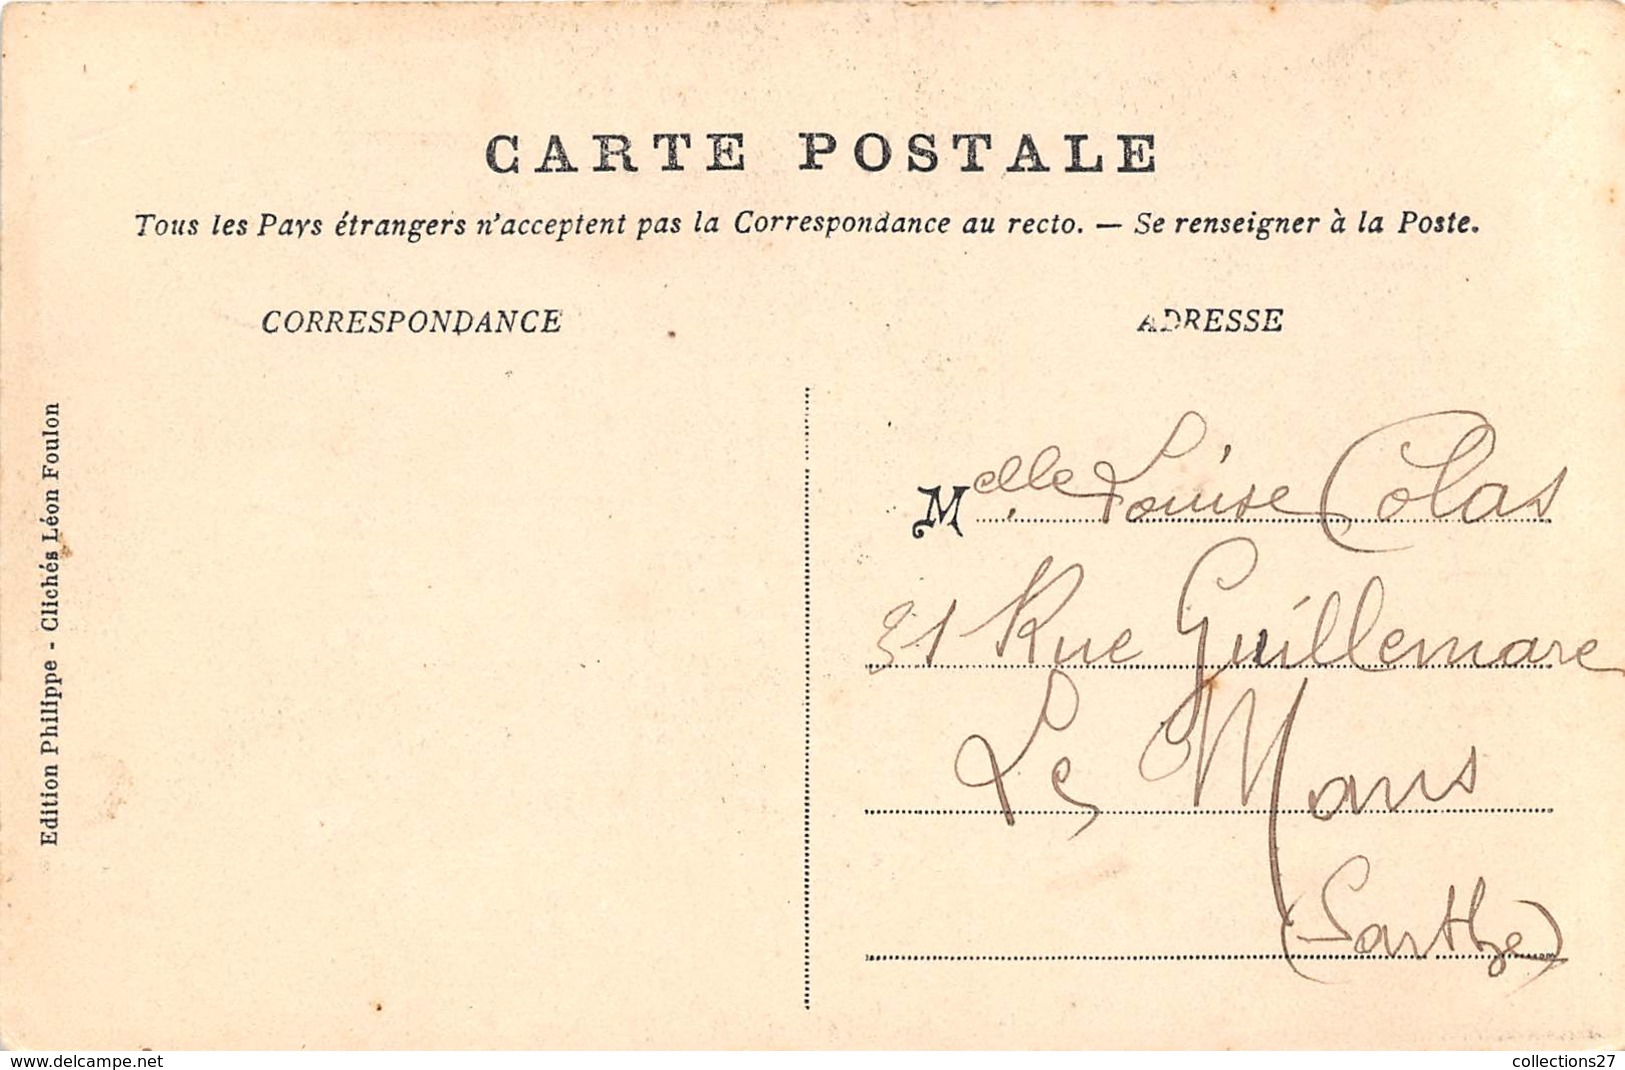 CARTE POSTALE
Tous les Pays étrangers n'acceptent pas la Correspondance au recto. — Se renseigner à la Poste.
CORRESPONDANCE
ADRESSE
Edition Philippe - Clichés Léon Foulon
Melle Louise Colas
31 Rue Guillemare
Le Mans
(Sarthe)
www.delcampe.net
collections27